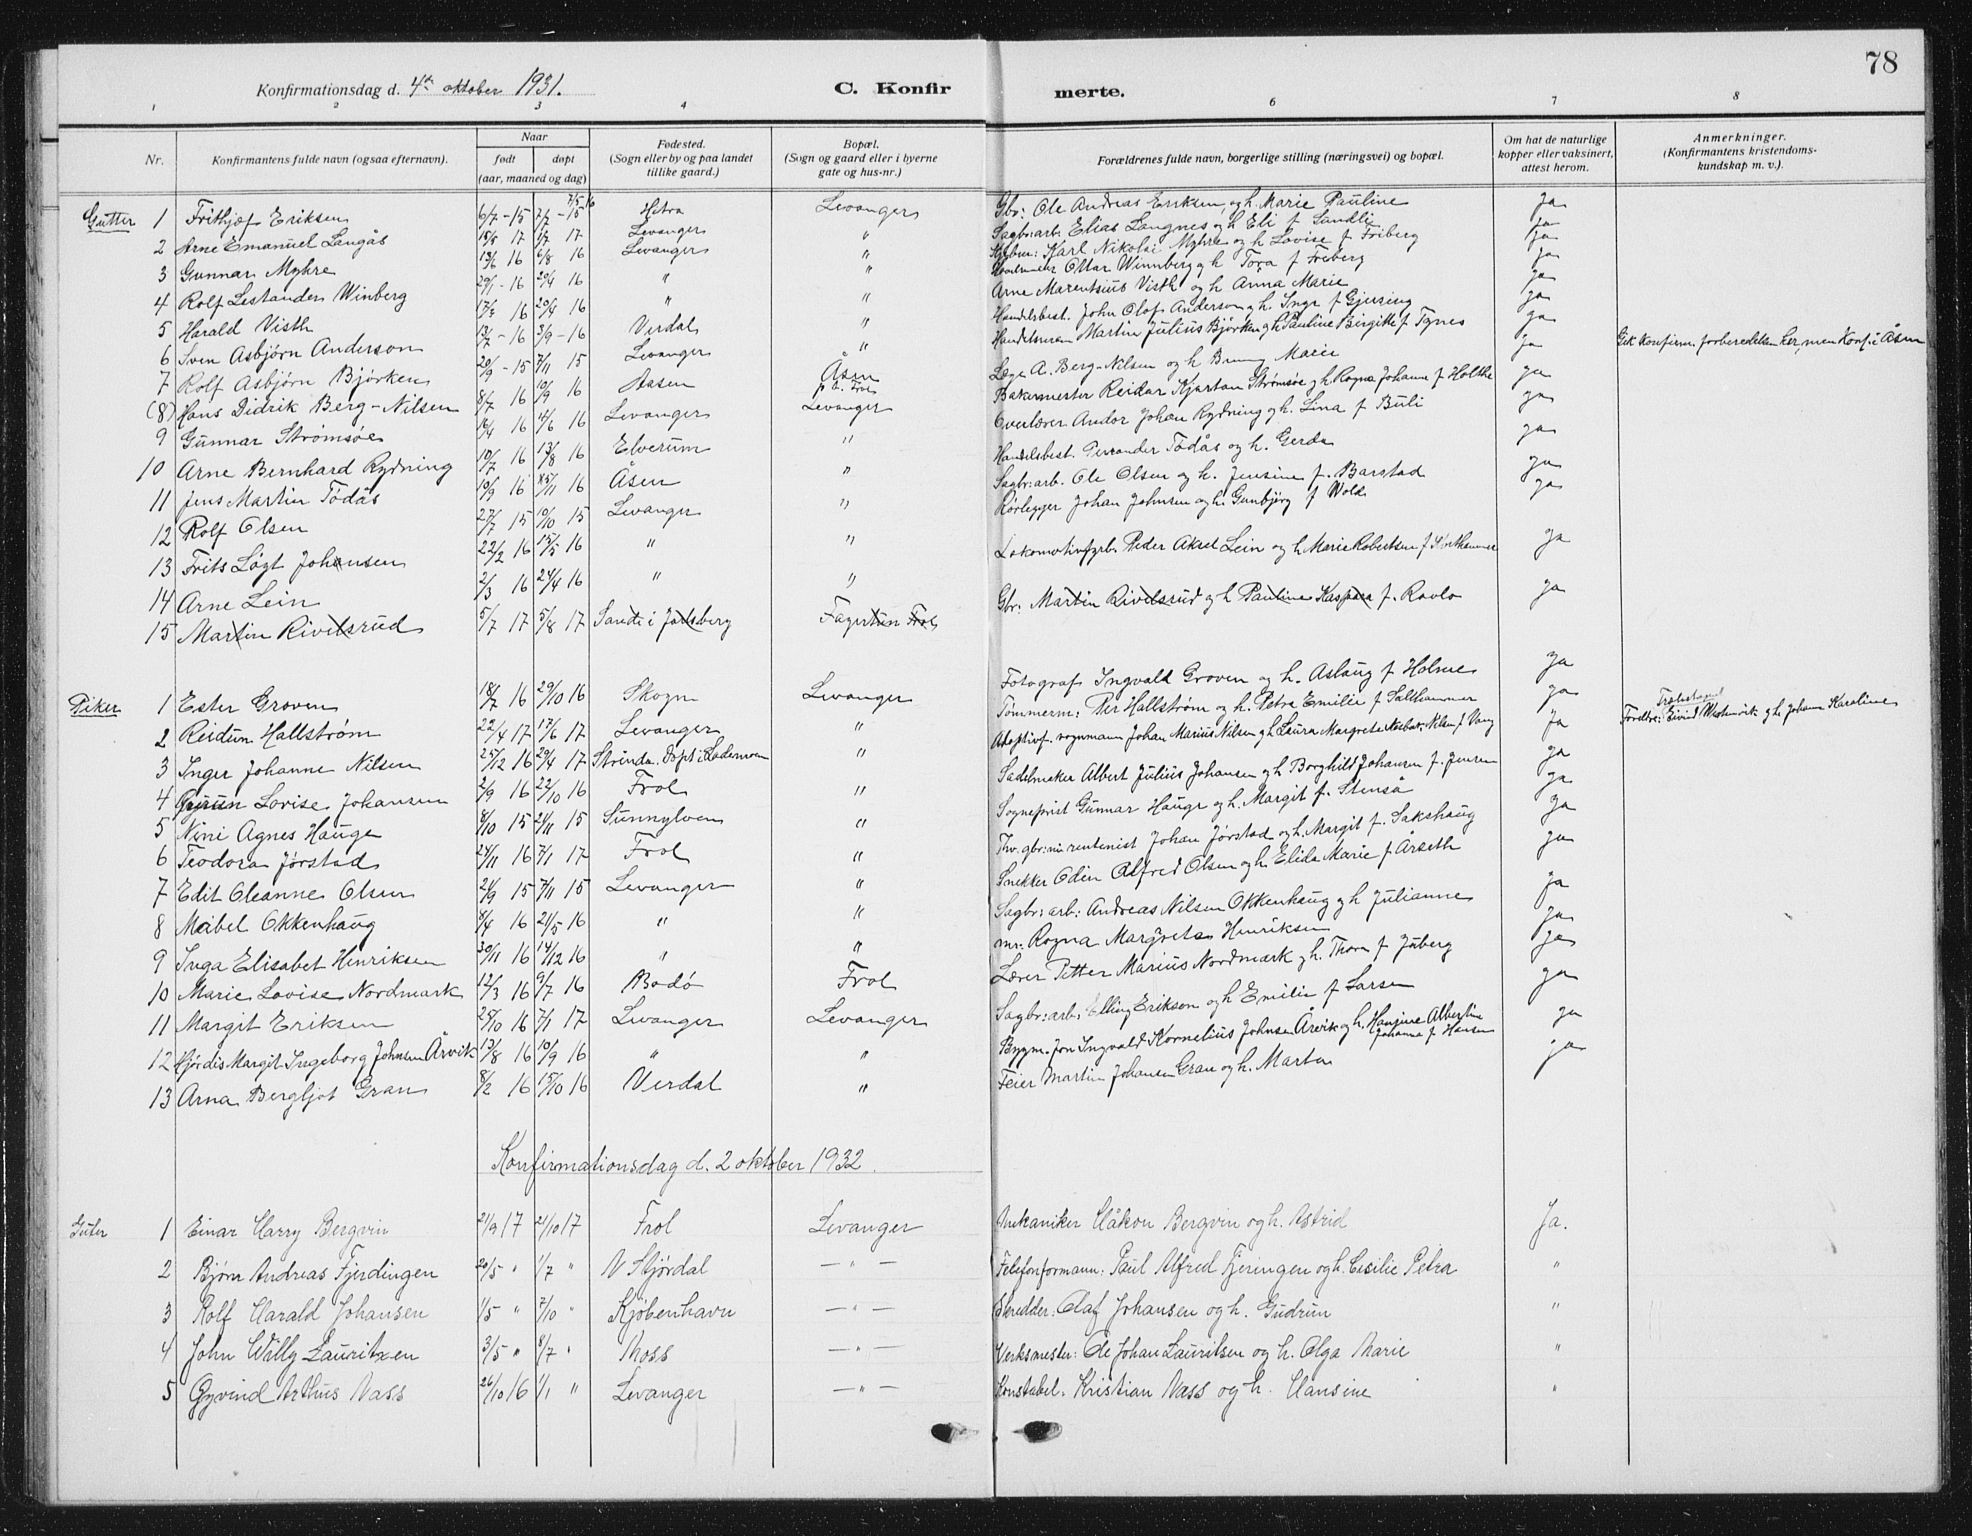 78
Konfirmationsdag d. 4de oktober 1931.
C. Konfirmerte.
1 2 3 4 6 7 8
Nr. Konfirmantens fulde navn (ogsaa efternavn). Naar født døpt (aar, maaned og dag) Fødested. (Sogn eller by og paa landet tillike gaard.) Bopæl. (Sogn og gaard eller i byerne gate og hus-nr.) Forældrenes fulde navn, borgerlige stilling (næringsvei) og bopæl. Om hat de naturlige kopper eller vaksinert, attest herom. Anmerkninger. (Konfirmantens kristendomskundskap m. v.).
Gutter 1 Frithjof Eriksen 6/7 - 15 Hitra Levanger Gbr: Ole Andreas Eriksen og h. Marie Pauline Ja
2 Arne Emanuel Langås 17 1/7 17 Levanger " Sagbr:arb. Elias Langnes og h Eli f Sundli Ja
3 Gunnar Myhre 13/6 16 6/8 16 Levanger " Karl Nikolai Myhre og h Lovise f Friberg Ja
4 Rolf Lestander Winberg 29/1 - 16 20/4 16 " " Ottar Winnberg og h Tora f Freberg Ja
5 Harald Visth 16 20/4 16 " " Arne Marentsius Visth og h Anna Marie Ja
6 Sven Asbjørn Anderson 16 3/9 - 16 Verdal " Handelsbest. John Olof Anderson og h. Inga f Gjensing Ja
7 Rolf Asbjørn Bjørken 20/9 - 15 7/11 15 Levanger " Handelsmann Martin Julius Bjørken og h Pauline Birgitte f Tynes Ja
(8) Hans Didrik Berg-Nilsen 8/7 16 10/9 16 Aasen Åsen p.t. Frol Læge A. Berg-Nilsen og h Marie Ja Gik konfirm. forberedelsen her, men konf. i Åsen
9 Gunnar Strømsøe 16/4 16 4/6 16 Levanger Levanger Bakermester Reidar Kjartan Strømsøe og h Ragna Johanne f Holthe ja
10 Arne Bernhard Rydning 10/7 16 13/8 16 Elverum " Overlærer Andor Johan Rydning og h. Lina f Buli ja
11 Jens Martin Tødås 10/9 16 16 Åsen " Handelsbest. Tødås og h. Gerda ja
12 Rolf Olsen 27/7 15 10/10 15 Levanger " Sagbr:arb. Ole Olsen og h. Jensine f. Barstad ja
13 Frits Lögt Johansen 22/2 16 15/5 16 " " Rørlegger Johan Johnsen og h. Gunbjørg f Wold ja
14 Arne Lein 2/3 16 24/4 16 " " Lokomotivfyrb. Peder Aksel Lein og h Marie Robertsen f ja
15 Martin Rivelsrud 5/7 17 5/8 17 Sande i Jarlsberg Fagertun Frol Gbr: Martin Rivelsrud og h Pauline Kaspara f. Ravlo ja
Piker 1 Ester Groven 18/7 16 29/10 16 Skogn Levanger Fotograf Ingvald Groven og h. Aslaug f Holme ja
2 Reidun Hallstrøm 22/4 17 17/6 17 Levanger " Tømmerm: Per Hallstrøm og h. Petra Emilie f Salthammer ja
3 Inger Johanne Nilsen 25/12 16 29/4 17 Strinda. Døpt i Lademoen " Adoptivf. vognmann Johan Marius Nilsen og h Laura Margrete Nilsen f. Vang Ja Foreldre: Eivind Westervik og h Johanne Karoline
4 Gujrun Lovise Johansen 2/9 16 22/10 16 Frol " Sadelmaker Albert Julius Johansen og h Borghild Johansen f. Jensen ja
5 Nini Agnes Hauge 8/10 15 21/11 15 Sunnylven " Sogneprist Gunnar Hauge og h. Margit f. Stenså ja
6 Teodora Jørstad 24/11 16 7/1 17 Frol " Fhv. gbr: nu rentenist Johan Jørstad og h. Margit f. Sakshaug ja
7 Edit Oleanne Olsen 24/9 15 7/11 15 Levanger " Snekker Odin Alfred Olsen og h. Elida Marie f Årseth ja
8 Mabel Okkenhaug 8/4 16 21/5 16 " " Sagbr:arb: Andreas Nilsen Okkenhaug og h Julianne ja
9 Inga Elisabet Henriksen 30/11 16 14/12 16 " " Ragna Margrete Henriksen ja
10 Marie Lovise Nordmark 12/3 16 9/7 16 Bodø Frol Lærer Petter Marius Nordmark og h. Thora f Juberg ja
11 Margit Eriksen 28/10 16 7/1 17 Levanger Levanger Sagbr:arb: Elling Eriksen og h Emilie f Larsen ja
12 Hjördis Margit Ingeborg Johnsen Årvik 13/8 16 10/9 16 " " Bygm. Jon Ingvald Kornelius Johnsen Årvik og h. Hansine Albertine Johanna f Hansen ja
13 Arna Bergljot Gran 8/2 16 15/10 16 Verdal " Feier Martin Johansen Gran og h. Marta ja
Konfirmationsdag d. 2 oktober 1932.
Guter 1 Einar Harry Bergvin 21/9 17 21/10 17 Frol Levanger Mekaniker Håkon Bergvin og h. Astrid Ja.
2 Bjørn Andreas Fjerdingen 20/5 " 1/7 " N Stjørdal — " — Telefonformann: Paul Alfred Fjeringen og h. Cecilie Petra "
3 Rolf Harald Johansen 1/5 " 7/10 " Kjøbenhavn — " — Skredder: Olaf Johansen og h. Gudrun "
4 John Willy Lauritzen 3/5 " 8/7 " Moss — " — Verksmester: Ole Johan Lauritsen og h. Olga Marie "
5 Øyvind Arthus Nass 26/10 16 1/1 " Levanger — " — Konstabel. Kristian Nass og h. Hansine "